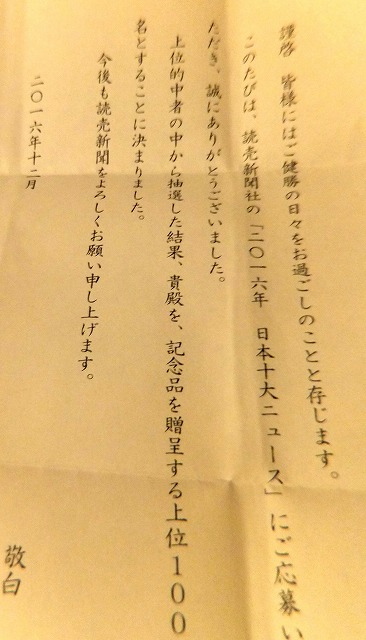 謹啓　皆様にはご健勝の日々をお過ごしのことと存じます。
このたびは、読売新聞社の「二〇一六年　日本十大ニュース」にご応募い
ただき、誠にありがとうございました。
上位的中者の中から抽選した結果、貴殿を、記念品を贈呈する上位100
名とすることに決まりました。
今後も読売新聞をよろしくお願い申し上げます。
二〇一六年十二月
敬白